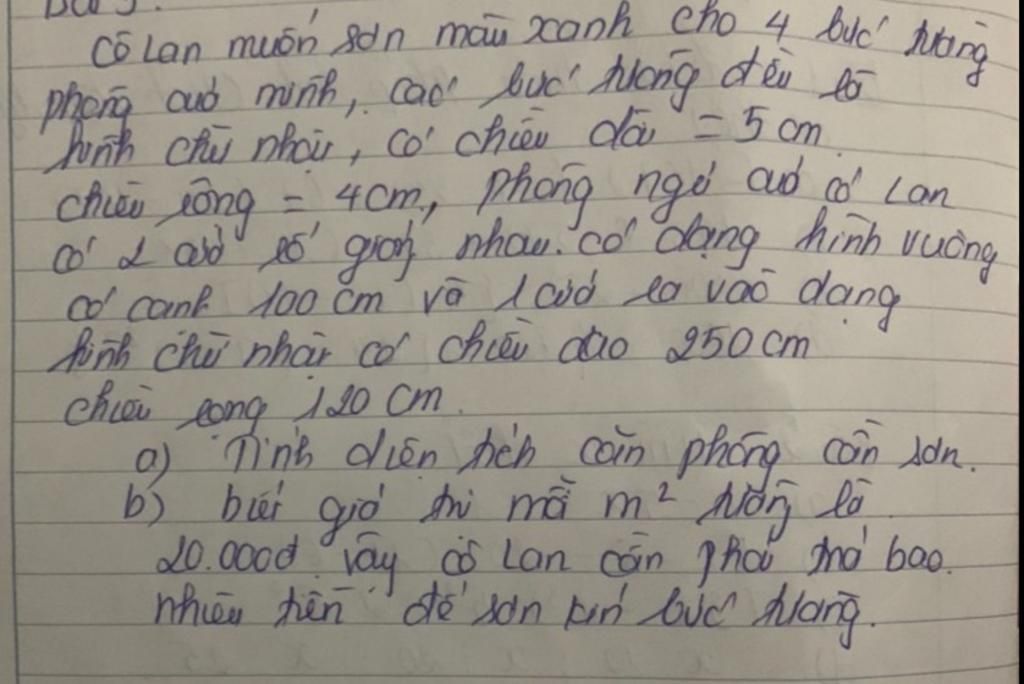 Cô Lan muốn sơn màu xanh cho 4 bức tường
phòng của mình, các bức tường đều là
hình chữ nhật, có chiều dài = 5 cm
chiều rộng = 4cm, phòng ngủ của cô Lan
có 2 cửa sổ giống nhau. có dạng hình vuông
có cạnh 100 cm và 1 cửa ra vào dạng
hình chữ nhật có chiều cao 250 cm
chiều rộng 120 cm.
a) Tính diện tích căn phòng cần sơn.
b) biết giá thì mỗi m² tường là
20.000đ vậy cô Lan cần phải trả bao
nhiêu tiền để sơn kín bức tường.